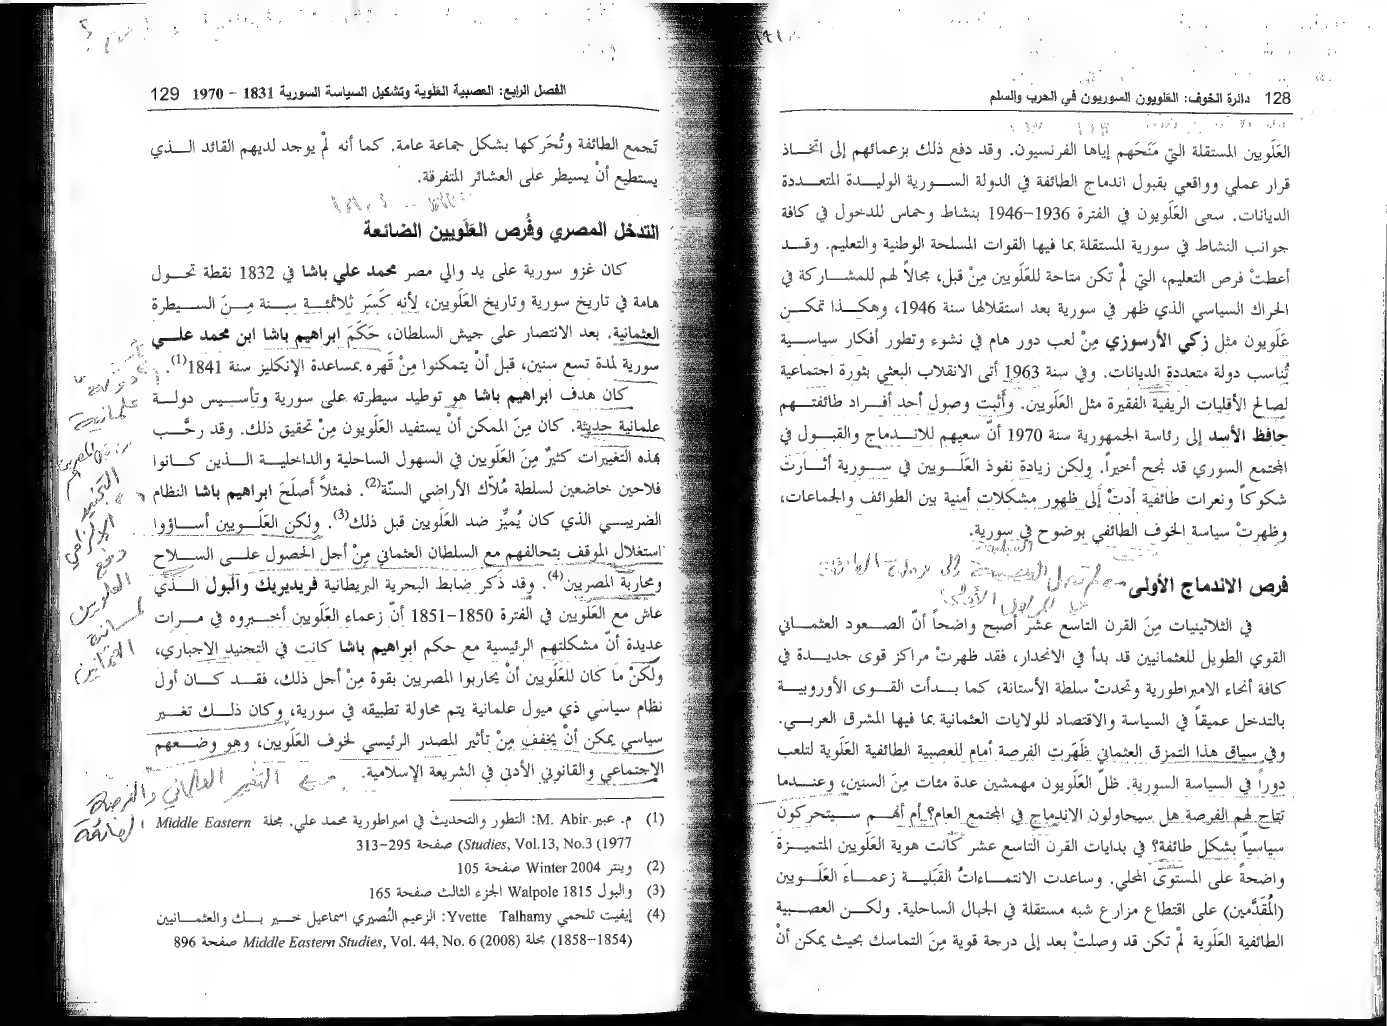 128 دائرة الخوف: العَلَويون السوريون في الحرب والسلم
العَلَويين المستقلة التي مَنَحَهم إياها الفرنسيون. وقد دفع ذلك بزعمائهم إلى اتخــاذ
قرار عملي وواقعي بقبول اندماج الطائفة في الدولة الســورية الوليــدة المتعــددة
الديانات. سعى العَلَويون في الفترة 1936-1946 بنشاط وحماس للدخول في كافة
جوانب النشاط في سورية المستقلة بما فيها القوات المسلحة الوطنية والتعليم. وقــد
أعطتْ فرص التعليم، التي لمْ تكن متاحة للعَلَويين مِنْ قبل، مجالاً لهم للمشــاركة في
الحراك السياسي الذي ظهر في سورية بعد استقلالها سنة 1946، وهكــذا تمكــن
عَلَويون مثل زكي الأرسوزي مِنْ لعب دور هام في نشوء وتطور أفكار سياســية
تُناسب دولة متعددة الديانات. وفي سنة 1963 أتى الانقلاب البعثي بثورة اجتماعية
لصالح الأقليات الريفية الفقيرة مثل العَلَويين. وأَثبت وصول أحد أفــراد طائفتــهم
حافظ الأسد إلى رئاسة الجمهورية سنة 1970 أنّ سعيهم للانــدماج والقبول في
المجتمع السوري قد نجح أخيراً. ولكن زيادة نفوذ العَلَــويين في ســورية أثــارتْ
شكوكاً ونعرات طائفية أدتْ إلى ظهور مشكلات أمنية بين الطوائف والجماعات،
وظهرتْ سياسة الخوف الطائفي بوضوح في سورية.
فرص الاندماج الأولى
في الثلاثينيات مِنَ القرن التاسع عشر أصبح واضحاً أنّ الصــعود العثمــاني
القوي الطويل للعثمانيين قد بدأ في الانحدار، فقد ظهرتْ مراكز قوى جديــدة في
كافة أنحاء الامبراطورية وتحدتْ سلطة الأستانة، كما بــدأت القــوى الأوروبيــة
بالتدخل عميقاً في السياسة والاقتصاد للولايات العثمانية بما فيها المشرق العربي.
وفي سياق هذا التمزق العثماني ظَهَرَت الفرصة أمام للعصبية الطائفية العَلَوية لتلعب
دوراً في السياسة السورية. ظلّ العَلَويون مهمشين عدة مئات مِنَ السنين، وعنــدما
تتاح لهم الفرصة هل سيحاولون الاندماج في المجتمع العام؟ أم أنهــم ســيتحركون
سياسياً بشكل طائفة؟ في بدايات القرن التاسع عشر كانت هوية العَلَويين المتميــزة
واضحة على المستوى المحلي. وساعدت الانتمــاءاتُ القَبَليــة زعمــاء العَلَــويين
(المُقَدَّمين) على اقتطاع مزارع شبه مستقلة في الجبال الساحلية. ولكــن العصبية
الطائفية العَلَوية لمْ تكن قد وصلتْ بعد إلى درجة قوية مِنَ التماسك بحيث يمكن أنْ
الفصل الرابع: العصبية العلوية وتشكيل السياسة السورية 1831 – 1970 129
تَجمع الطائفة وتُحَركها بشكل جماعة عامة. كما أنه لمْ يوجد لديهم القائد الــذي
يستطيع أنْ يسيطر على العشائر المتفرقة.
التدخل المصري وفُرص العَلَويين الضائعة
كان غزو سورية على يد والي مصر محمد علي باشا في 1832 نقطة تحــول
هامة في تاريخ سورية وتاريخ العَلَويين، لأنه كَسَر ثلاثمئــة ســنة مِــنَ الســيطرة
العثمانية. بعد الانتصار على جيش السلطان، حَكَمَ ابراهيم باشا ابن محمد علــي
سورية لمدة تسع سنين، قبل أنْ يتمكنوا مِنْ قَهره بمساعدة الإنكليز سنة 1841(1).
كان هدف ابراهيم باشا هو توطيد سيطرته على سورية وتأســيس دولــة
علمانية حديثة. كان مِنَ الممكن أنْ يستفيد العَلَويون مِنْ تحقيق ذلك. وقد رحَّــب
بهذه التغييرات كثيرٌ مِنَ العَلَويين في السهول الساحلية والداخليــة الــذين كــانوا
فلاحين خاضعين لسلطة مُلاّك الأراضي السنّة(2). فمثلاً أصلَحَ ابراهيم باشا النظام
الضريبي الذي كان يُميِّز ضد العَلَويين قبل ذلك(3). ولكن العَلَــويين أســاؤوا
استغلال الموقف بتحالفهم مع السلطان العثماني مِنْ أجل الحصول علــى الســلاح
ومحاربة المصريين(4). وقد ذَكَر ضابط البحرية البريطانية فريديريك والبول الــذي
عاش مع العَلَويين في الفترة 1850-1851 أنّ زعماء العَلَويين أخــبروه في مــرات
عديدة أنّ مشكلتهم الرئيسية مع حكم ابراهيم باشا كانت في التجنيد الاجباري،
ولكنْ ما كان للعَلَويين أنْ يحاربوا المصريين بقوة مِنْ أجل ذلك، فقــد كــان أول
نظام سياسي ذي ميول علمانية يتم محاولة تطبيقه في سورية، وكان ذلــك تغــير
سياسي يمكن أنْ يخفف مِنْ تأثير المصدر الرئيسي لخوف العَلَويين، وهو وضــعهم
الاجتماعي والقانوني الأدنى في الشريعة الإسلامية.
(1) م. عبير M. Abir: التطور والتحديث في امبراطورية محمد علي. مجلة Middle Eastern
Studies, Vol.13, No.3 (1977) صفحة 295-313
(2) وينتر Winter 2004 صفحة 105
(3) والبول Walpole 1815 الجزء الثالث صفحة 165
(4) إيفيت تلحمي Yvette Talhamy: الزعيم النُصيري اسماعيل خــير بــك والعثمــانيين
(1854-1858) مجلة Middle Eastern Studies, Vol. 44, No. 6 (2008) صفحة 896
علمانية
التجنيد
دفع
العلويين